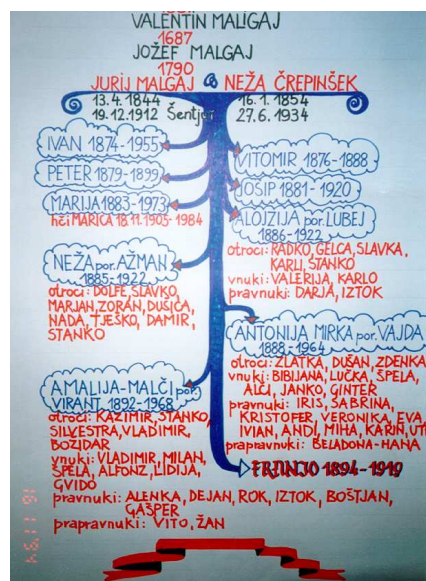 VALENTIN MALIGAJ
1687
JOŽEF MALGAJ
1790
JURIJ MALGAJ & NEŽA ČREPINŠEK
13.4.1844
19.12.1912 Šentjur
16.1.1854
27.6.1934
IVAN 1874-1955
PETER 1879-1899
MARIJA 1883-1973
hči MARICA 18.11.1905-1984
NEŽA por. AŽMAN
1885-1922
otroci: DOLFE, SLAVKO,
MARJAN, ZORAN, DUŠICA,
NADA, TJEŠKO, DAMIR,
STANKO
AMALIJA-MALČI por.
VIRANT 1892-1968
otroci: KAZIMIR, STANKO,
SILVESTRA, VLADIMIR,
BOŽIDAR
vnuki: VLADIMIR, MILAN,
ŠPELA, ALFONZ, LIDIJA,
GVIDO
pravnuki: ALENKA, DEJAN, ROK, IZTOK, BOŠTJAN,
GAŠPER
prapravnuki: VITO, ŽAN
VITOMIR 1876-1888
JOSIP 1881-1920
ALOJZIJA por. LUBEJ
1886-1922
otroci: RADKO, GELCA, SLAVKA,
KARLI, STANKO
vnuki: VALERIJA, KARLO
pravnuki: DARJA, IZTOK
ANTONIJA MIRKA por. VAJDA
1888-1964
otroci: ZLATKA, DUŠAN, ZDENKA
vnuki: BIBIJANA, LUČKA, ŠPELA,
ALČI, JANKO, GINTER
pravnuki: IRIS, SABRINA,
KRISTOFER, VERONIKA, EVA,
IVIAN, ANDI, MIHA, KARIN, UT
prapravnuki: BELADONA-HANA
FRANJO 1894-1919